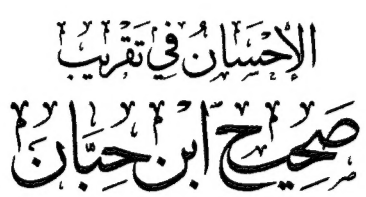 الإحْسَانُ في تَقْريبِ
صَحِيْحِ ابْنِ حِبَّانَ